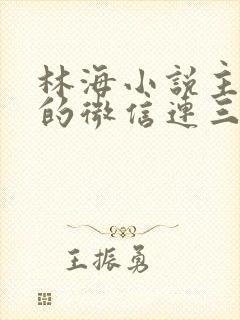 林海小说主
的微信连三
王振勇